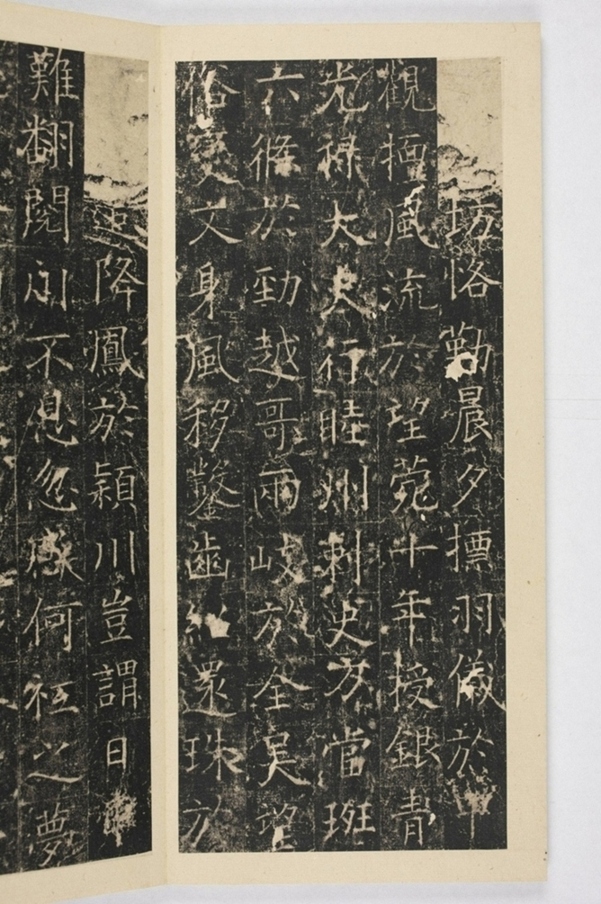 坊恪勤晨夕摽羽儀於中
觀栖風流於望菀十年授銀青
光祿大夫行睦州刺史方當班
六條於勁越哥兩岐於全吳望
俗變文身風移鑿齒紹還珠於
追降鳳於潁川豈謂日
難翻閱川不息忽何祗之夢